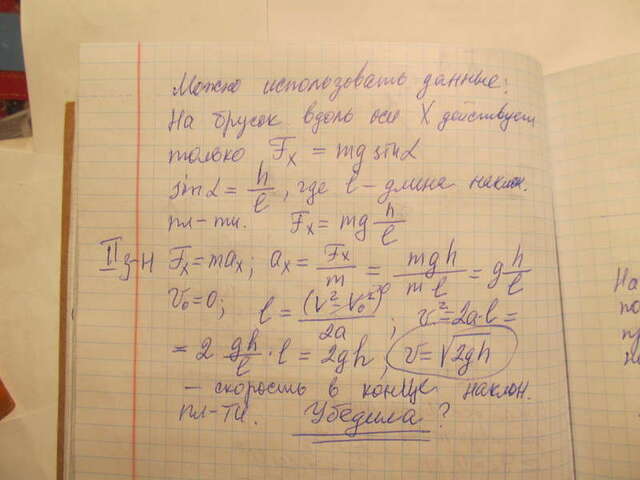 Можно использовать данные:
На брусок вдоль оси X действует
только Fx = mg sinα
sinα = h/l, где l - длина наклон.
пл-ти. Fx = mg h/l
II з-н Fx = max; ax = Fx/m = mgh/ml = g h/l
V₀=0; l = (V²-V₀²)/2a; V²=2a·l =
= 2 gh/l · l = 2gh; V=√2gh
- скорость в конце наклон.
пл-ти. Убедила?
На
по